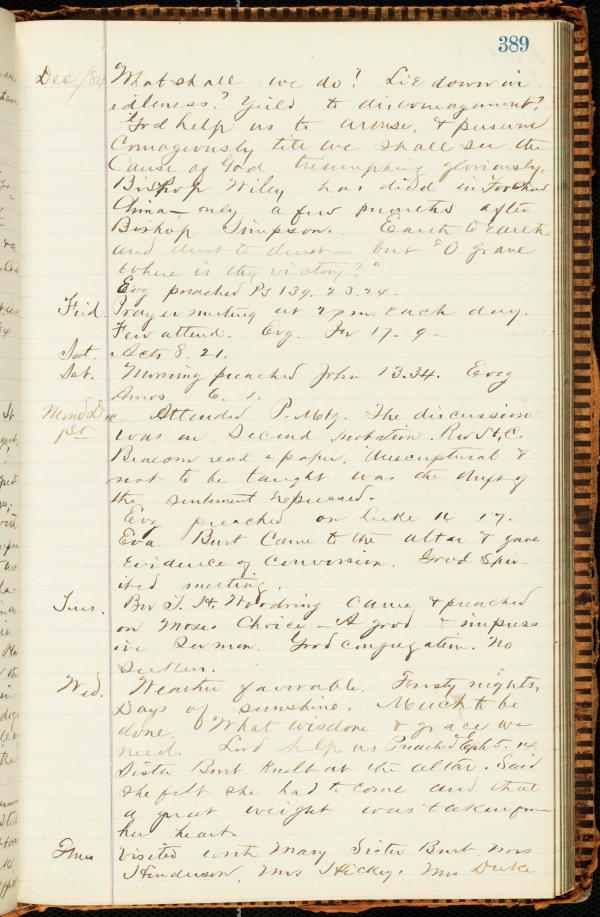 389
Dec/84 What shall we do? Lie down in
idleness? Yield to discouragement?
God help us to arouse, & persevere
Courageously till we shall see the
Cause of God triumphing gloriously.
Bishop Wiley has died in Foochow
China — only a few months after
Bishop Simpson. Earth to Earth
and dust to dust — but "O grave
where is thy victory?"
Evg preached Ps 139. 23.24.
Frid. Prayer meeting at 2 pm. each day.
Few attend. Evg. Jer 17-9-
Sat. Acts 8. 21.
Sab. Morning preached John 13.34. Evg
Amos 6. 1.
Mond Dec Attended P. Metg. The discussion
was on Second probation. Rev
Beacom read a paper. Unscriptural &
not to be taught was the
the sentiment expressed.
Evg preached on Luke 14 17.
Eva Burt Came to the altar & gave
Evidence of Conversion. Good Spir-
ited meeting.
Tues. Bro J. H. Woodring came & preached
on Moses Choice — A good & impress
ive Sermon. Good congregation. No
Seekers.
Wed. Weather favorable. Frosty nights,
Days of sunshine. Much to be
done. What wisdom & grace we
need. Lord help us Preached Eph 5. 14.
Sister Burt Knelt at the altar. Said
she felt she had to come and that
a great weight was taken from
her heart.
Thurs Visited with Mary Sister Burt Mrs
Henderson, Mrs Hickey. Mrs Duke